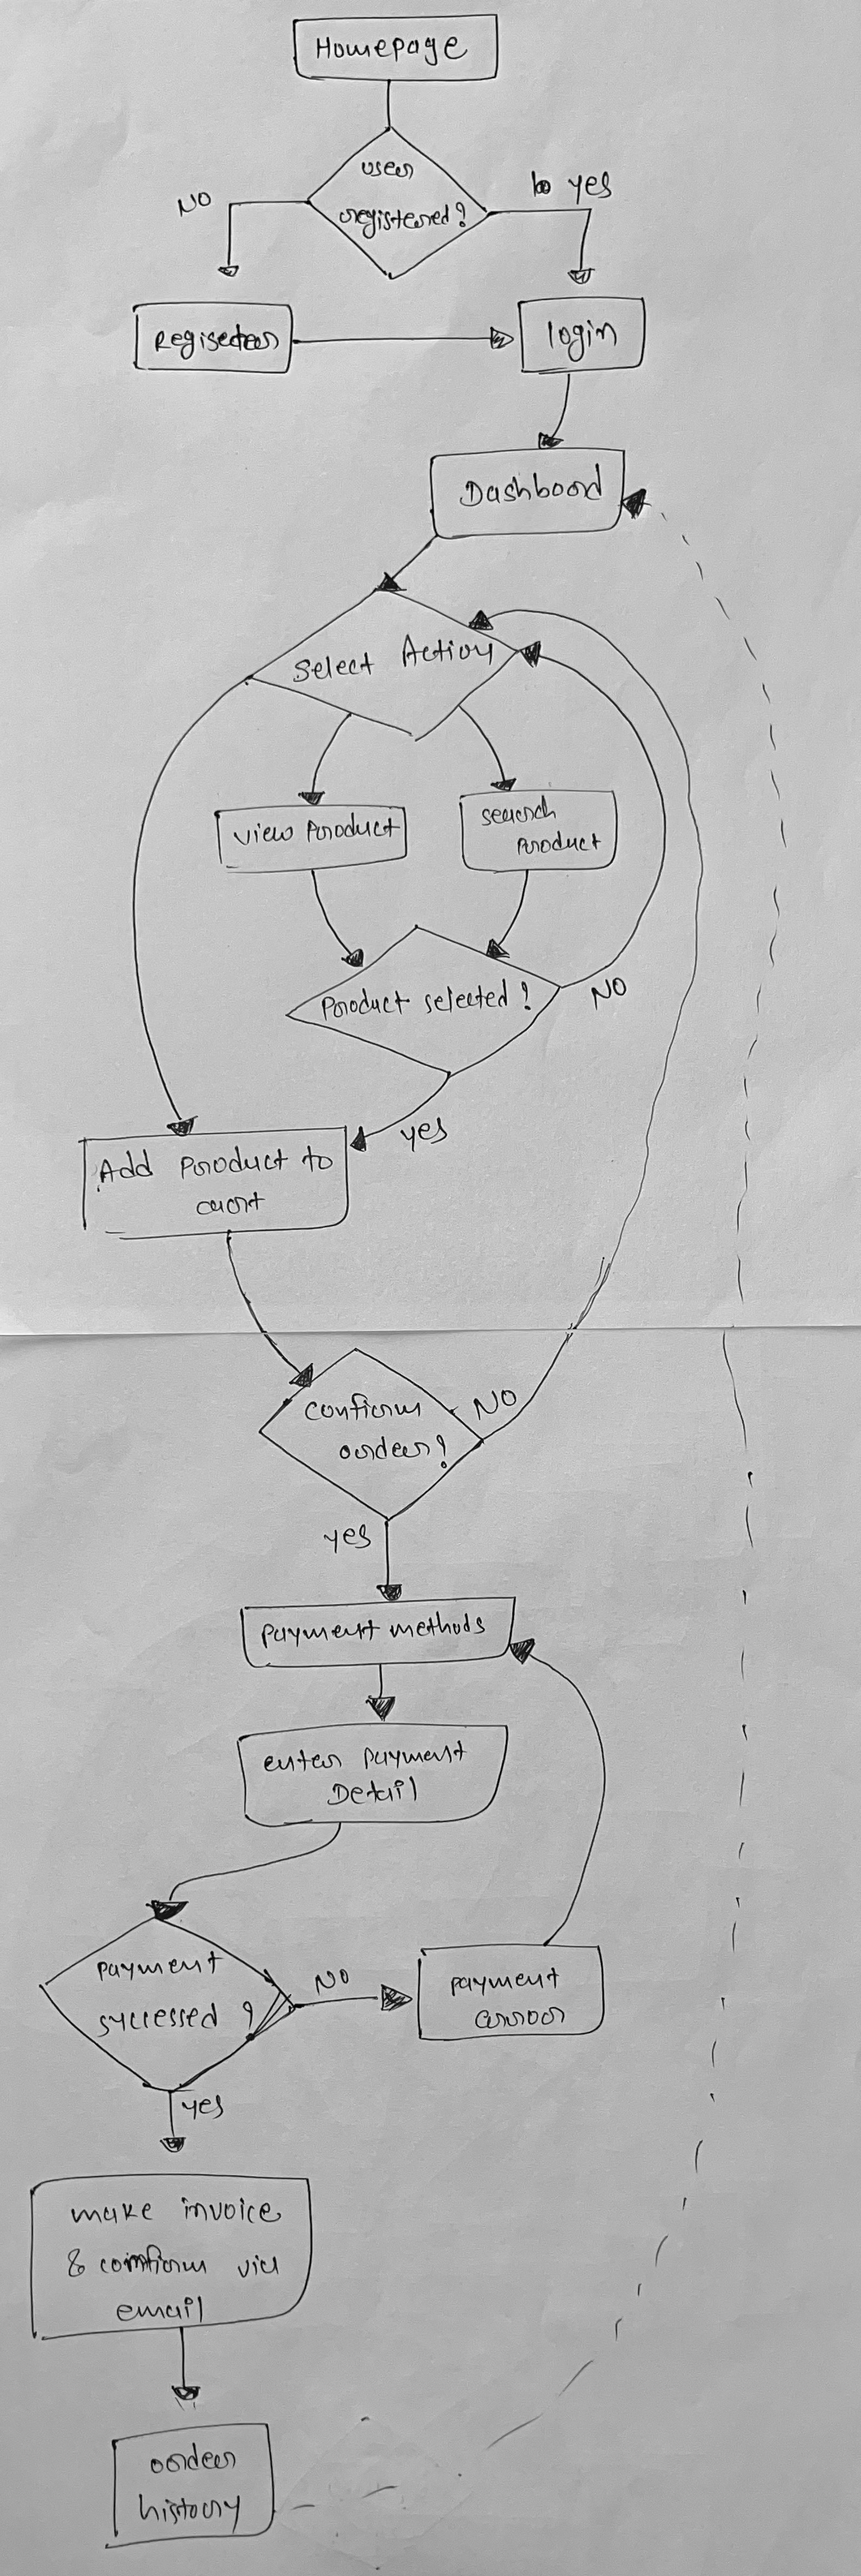 Homepage
user
registered?
NO
yes
Register
login
Dashboord
Select Action
view Product
search
Product
Product selected?
NO
yes
Add Product to
cart
confirm
order?
NO
yes
Payment methods
enter Payment
Detail
Payment
successed?
NO
Payment
error
yes
make invoice
& comfirm via
email
order
history